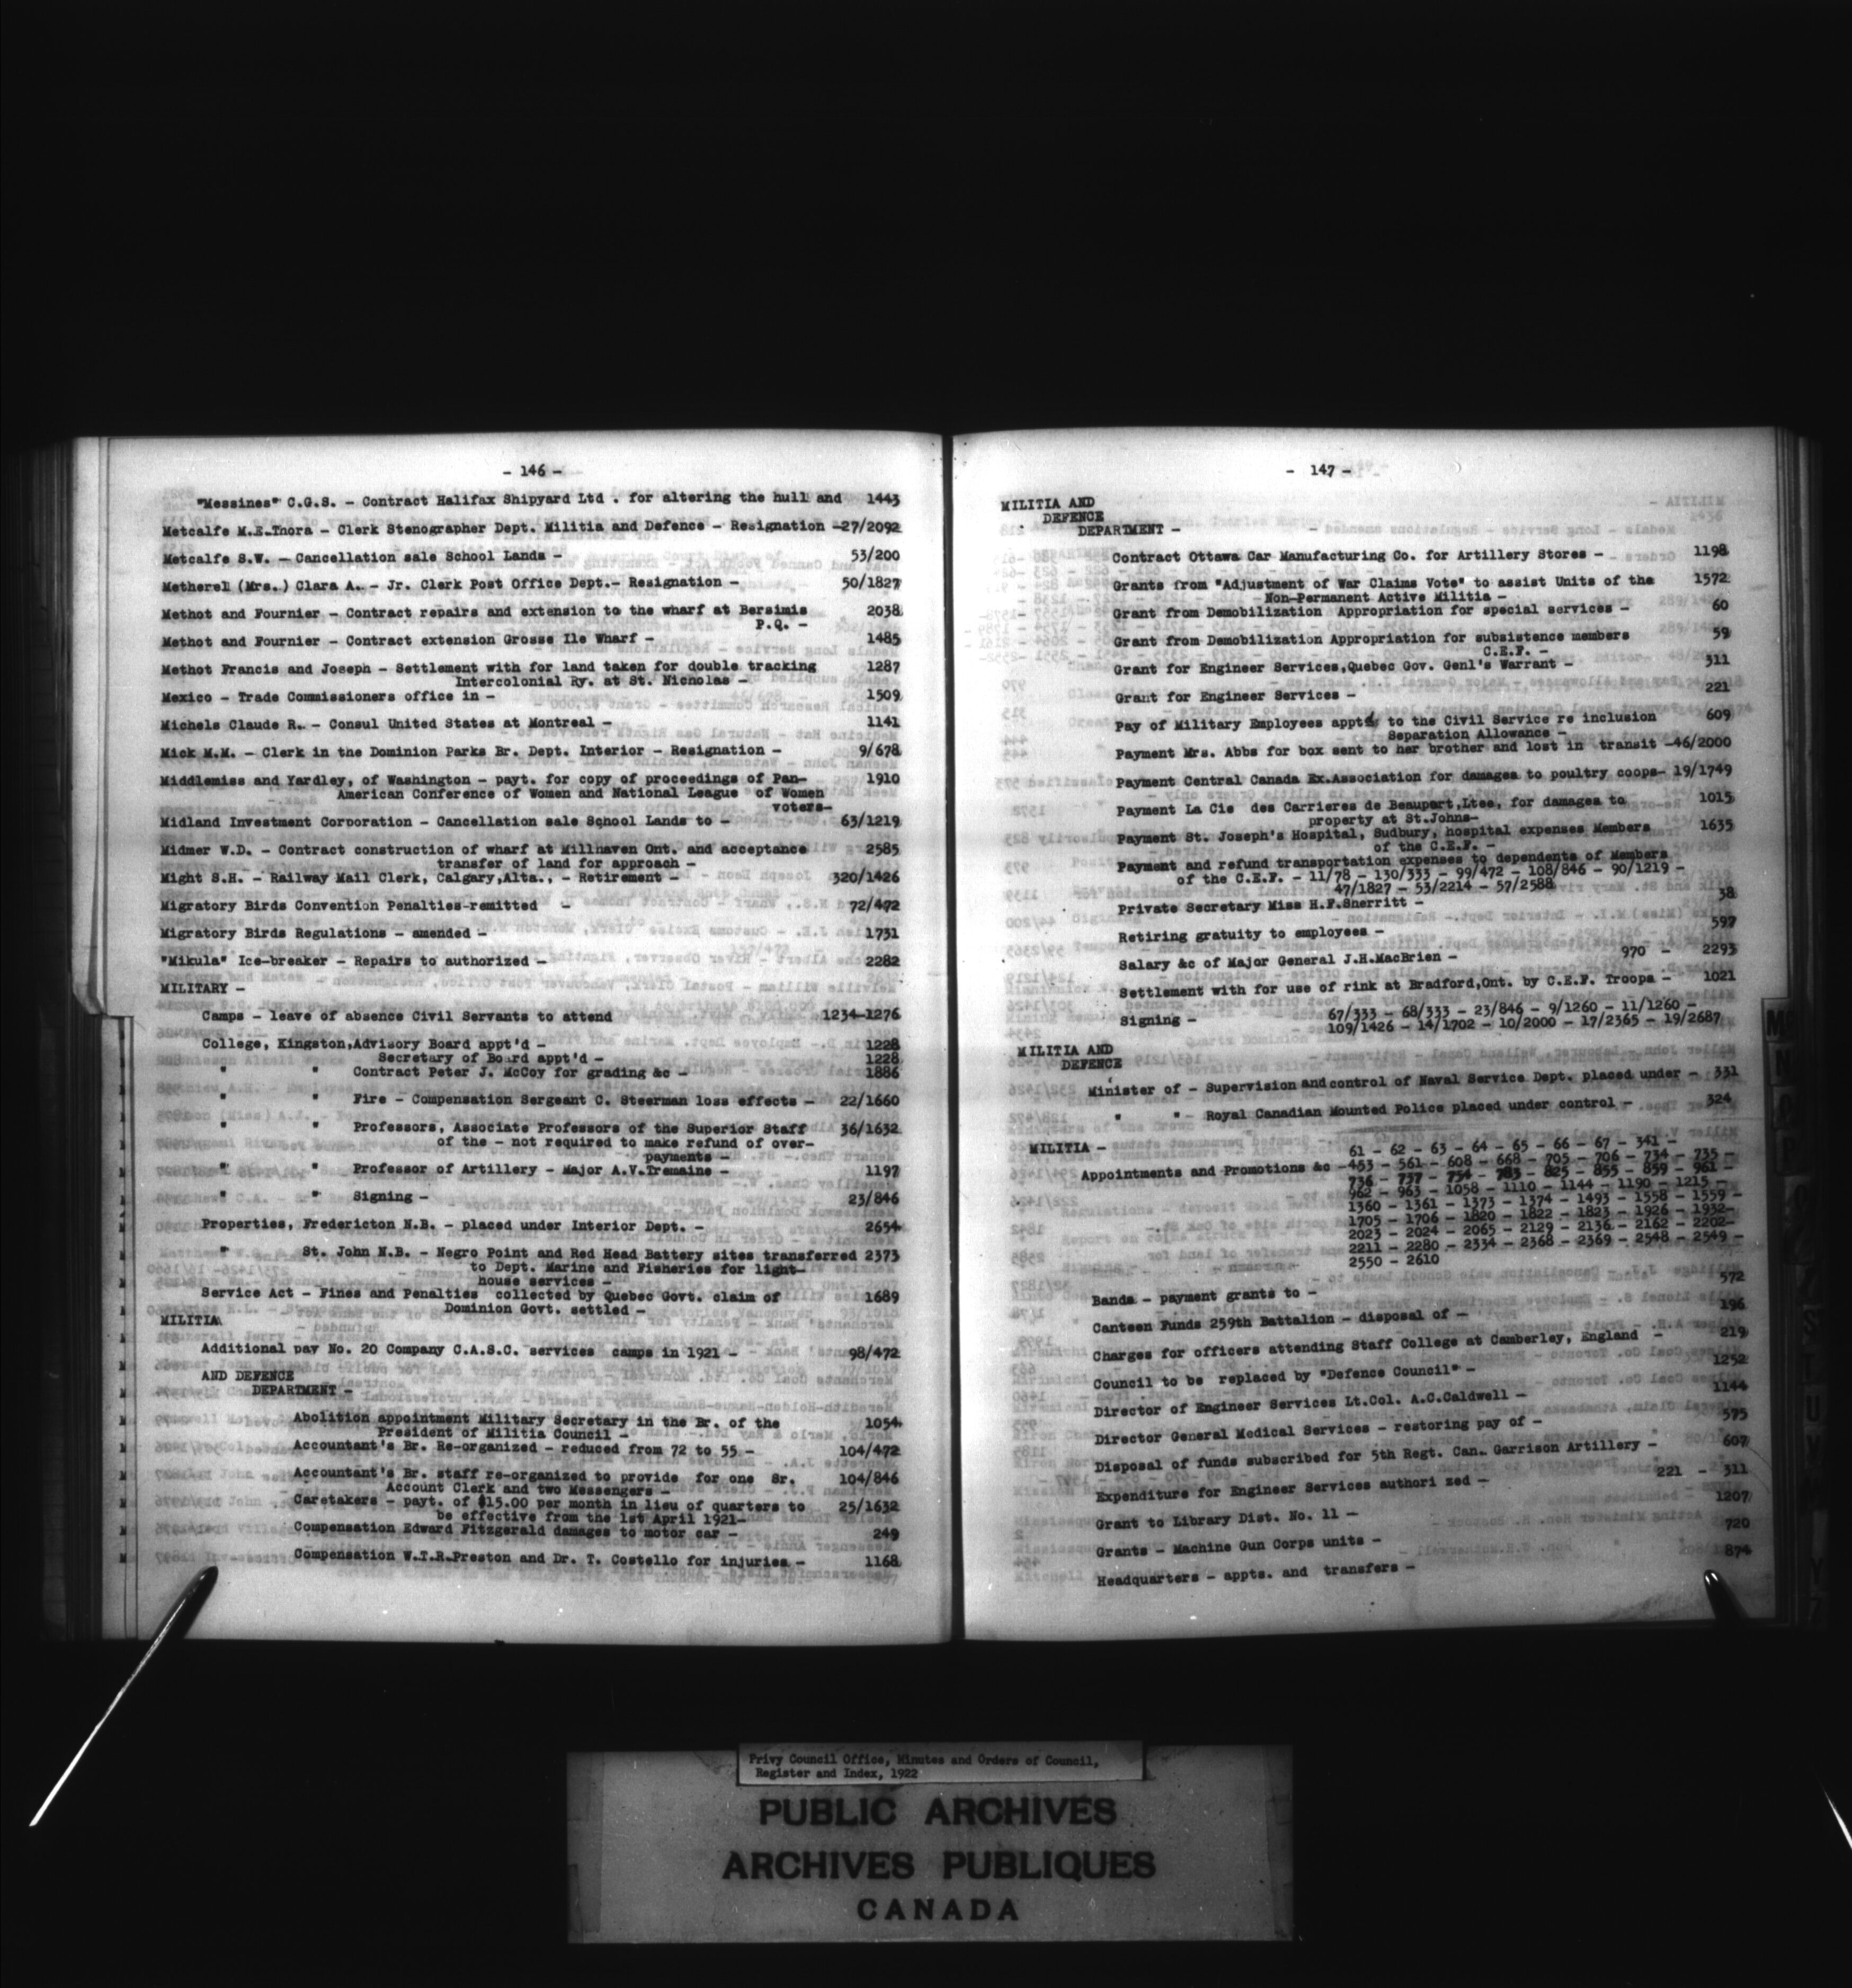 - 146 -
"Messines" C.G.S. - Contract Halifax Shipyard Ltd . for altering the hull and 1443
Metcalfe M.E.Thora - Clerk Stenographer Dept. Militia and Defence - Resignation -27/2092
Metcalfe S.W. - Cancellation sale School Lands - 53/200
Metherel (Mrs.) Clara A. - Jr. Clerk Post Office Dept.- Resignation - 50/1827
Methot and Fournier - Contract repairs and extension to the wharf at Bersimis 2038
P.Q. -
Methot and Fournier - Contract extension Grosse Ile Wharf - 1485
Methot Francis and Joseph - Settlement with for land taken for double tracking 1287
Intercolonial Ry. at St. Nicholas -
Mexico - Trade Commissioners office in - 1509
Michels Claude R. - Consul United States at Montreal - 1141
Mick M.M. - Clerk in the Dominion Parks Br. Dept. Interior - Resignation - 9/678
Middlemiss and Yardley, of Washington - payt. for copy of proceedings of Pan- 1910
American Conference of Women and National League of Women
voters-
Midland Investment Corporation - Cancellation sale School Lands to - 63/1219
Midmer W.D. - Contract construction of wharf at Millhaven Ont. and acceptance 2585
transfer of land for approach -
Might S.H. - Railway Mail Clerk, Calgary,Alta., - Retirement - 320/1426
Migratory Birds Convention Penalties-remitted - 72/472
Migratory Birds Regulations - amended - 1731
"Mikula" Ice-breaker - Repairs to authorized - 2282
MILITARY -
Camps - leave of absence Civil Servants to attend 1234-1276
College, Kingston,Advisory Board appt'd - 1228
Secretary of Board appt'd - 1228
" " Contract Peter J. McCoy for grading &c - 1886
" " Fire - Compensation Sergeant C. Steerman loss effects - 22/1660
" " Professors, Associate Professors of the Superior Staff 36/1632
of the - not required to make refund of over-
payments -
" " Professor of Artillery - Major A.V.Tremaine - 1197
" " Signing - 23/846
Properties, Fredericton N.B. - placed under Interior Dept. - 2654
" St. John N.B. - Negro Point and Red Head Battery sites transferred 2373
to Dept. Marine and Fisheries for light-
house services -
Service Act - Fines and Penalties collected by Quebec Govt. claim of 1689
Dominion Govt. settled -
MILITIA
Additional pay No. 20 Company C.A.S.C. services camps in 1921 - 98/472
AND DEFENCE
DEPARTMENT -
Abolition appointment Military Secretary in the Br. of the 1054
President of Militia Council -
Accountant's Br. Re-organized - reduced from 72 to 55 - 104/472
Accountant's Br. staff re-organized to provide for one Sr. 104/846
Account Clerk and two Messengers -
Caretakers - payt. of $15.00 per month in lieu of quarters to 25/1632
be effective from the 1st April 1921-
Compensation Edward Fitzgerald damages to motor car - 249
Compensation W.T.R.Preston and Dr. T. Costello for injuries - 1168
- 147 -
MILITIA AND
DEFENCE
DEPARTMENT -
Contract Ottawa Car Manufacturing Co. for Artillery Stores - 1198
Grants from "Adjustment of War Claims Vote" to assist Units of the 1572
Non-Permanent Active Militia -
Grant from Demobilization Appropriation for special services - 60
Grant from Demobilization Appropriation for subsistence members 59
C.E.F. -
Grant for Engineer Services,Quebec Gov. Genl's Warrant - 311
Grant for Engineer Services - 221
Pay of Military Employees appt'd to the Civil Service re inclusion 609
Separation Allowance -
Payment Mrs. Abbs for box sent to her brother and lost in transit -46/2000
Payment Central Canada Ex.Association for damages to poultry coops- 19/1749
Payment La Cie des Carrieres de Beauport,Ltee, for damages to 1015
property at St.Johns-
Payment St. Joseph's Hospital, Sudbury, hospital expenses Members 1635
of the C.E.F. -
Payment and refund transportation expenses to dependents of Members
of the C.E.F. - 11/78 - 130/333 - 99/472 - 108/846 - 90/1219 -
47/1827 - 53/2214 - 57/2588
Private Secretary Miss H.F.Sherritt - 58
Retiring gratuity to employees - 597
Salary &c of Major General J.H.MacBrien - 970 - 2293
Settlement with for use of rink at Bradford,Ont. by C.E.F. Troops - 1021
Signing - 67/333 - 68/333 - 23/846 - 9/1260 - 11/1260 -
109/1426 - 14/1702 - 10/2000 - 17/2365 - 19/2687
MILITIA AND
DEFENCE
Minister of - Supervision and control of Naval Service Dept. placed under - 331
" " - Royal Canadian Mounted Police placed under control - 324
MILITIA -
61 - 62 - 63 - 64 - 65 - 66 - 67 - 341 -
Appointments and Promotions &c -453 - 561 - 608 - 668 - 705 - 706 - 734 - 735 -
736 - 737 - 754 - 783 - 825 - 855 - 859 - 961 -
962 - 963 - 1058 - 1110 - 1144 - 1190 - 1215 -
1360 - 1361 - 1373 - 1374 - 1493 - 1558 - 1559 -
1705 - 1706 - 1820 - 1822 - 1823 - 1926 - 1932-
2023 - 2024 - 2065 - 2129 - 2136 - 2162 - 2202-
2211 - 2280 - 2334 - 2368 - 2369 - 2548 - 2549 -
2550 - 2610
Bands - payment grants to - 572
Canteen Funds 259th Battalion - disposal of - 196
Charges for officers attending Staff College at Camberley, England - 219
Council to be replaced by "Defence Council" - 1252
Director of Engineer Services Lt.Col. A.C.Caldwell - 1144
Director General Medical Services - restoring pay of - 575
Disposal of funds subscribed for 5th Regt. Can. Garrison Artillery - 607
Expenditure for Engineer Services authori zed - 221 - 311
Grant to Library Dist. No. 11 - 1207
Grants - Machine Gun Corps units - 720
Headquarters - appts. and transfers - 874
Privy Council Office, Minutes and Orders of Council,
Register and Index, 1922
PUBLIC ARCHIVES
ARCHIVES PUBLIQUES
CANADA